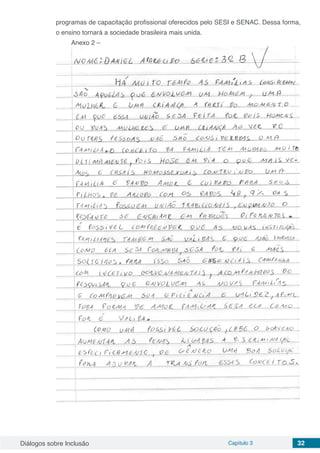 programas de capacitação profissional oferecidos pelo SESI e SENAC. Dessa forma,
o ensino tornará a sociedade brasileira mais unida.
Anexo 2 –
NOME: DANIEL APARECIDO SERIE: 3º B
HÁ MUITO TEMPO AS FAMÍLIAS
SÃO AQUELAS QUE ENVOLVEM UM HOMEM, UMA
MULHER E UMA CRIANÇA A PARTI DO MOMENTO
EM QUE ESSA UNIÃO SEJA FEITA POR DOIS HOMENS
OU DUAS MULHERES E UMA CRIANÇA AO VER DE
OUTRAS PESSOAS NÃO SÃO CONSIDERADAS UMA
FAMILIA. O CONCEITO DA FAMÍLIA TEM MUDADO MUITO
ULTIMAMENTE, POIS HOJE EM DIA O QUE MAIS VE-
MOS E CASAIS HOMOSSEXUAIS CONTRUINDO UMA
FAMILIA E DANDO AMOR E CUIDADO PARA SEUS
FILHOS. DE ACORDO COM OS DADOS 48,9% DAS
FAMILIAS POSSUEM UNIÃO TRADICIONAIS, ENQUANTO O
RESTANTE SE ENCAIXAM EM PADRÕES DIFERENTES.
É POSSIVEL COMPREENDER QUE AS NOVAS
FAMILIARES TAMBEM SÃO VALIDAS E QUE NÃO
COMO ELA SEJA FORMADA, SEJA POR PAI E MÃES
SOLTEIROS. PARA ISSO SÃO ESSENCIAIS
COM INCETIVO, ACOMPANHADOS DE
PESQUISAR QUE ENVOLVEM AS NOVAS FAMILIAS
E COMPROVEM SUA EFICIÊNCIA E VALIDEZ, AFINAL
TODA FORMA DE AMOR FAMILIAR SEJA ELA COMO
FOR É VALIDA.
COMO UMA POSSÍVEL SOLUÇÃO, CABE O GOVERNO
AUMENTAR AS PENAS LIGADAS A DISCRIMINAÇÃO,
ESPECIFICAMENTE, DE GÊNERO UMA BOA SOLUÇÃO
PARA AJUDAR A ESSES CONCEITOS.
Diálogos sobre Inclusão
Capítulo 3
32